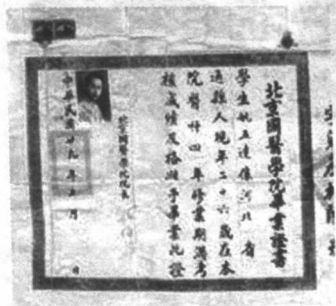 北京國醫學院畢業證書
學生姚五達係河北省
通縣人現年二十六歲在本
院醫科四年修業期滿考
核成績及格准予畢業此證
北京國醫學院院長
中華民國 九年 月 日